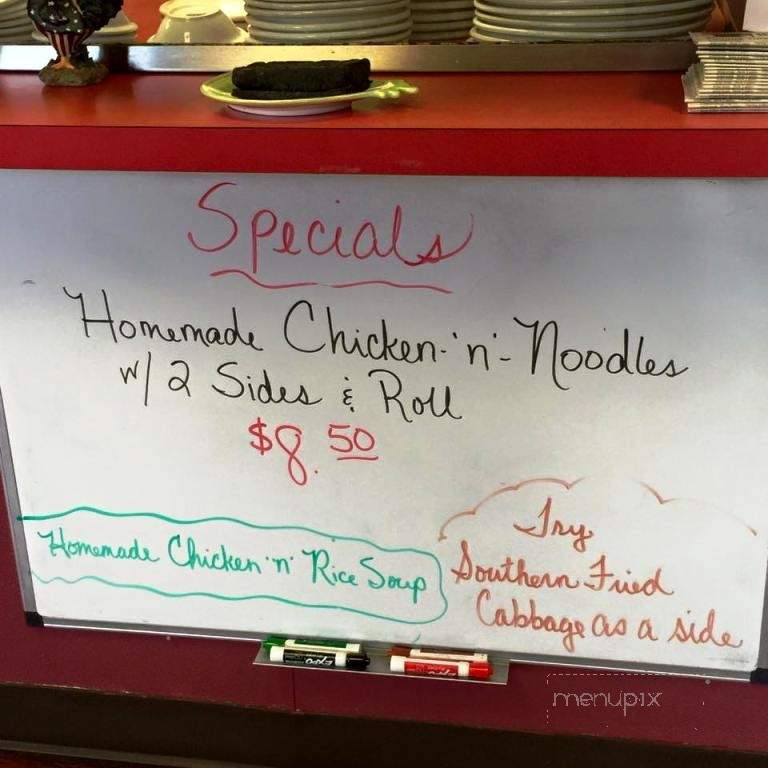 Specials
Homemade Chicken-'n'-Noodles
w/ 2 Sides & Roll
$8.50
Homemade Chicken 'n' Rice Soup
Try
Southern Fried
Cabbage as a side
EXPO
menupix